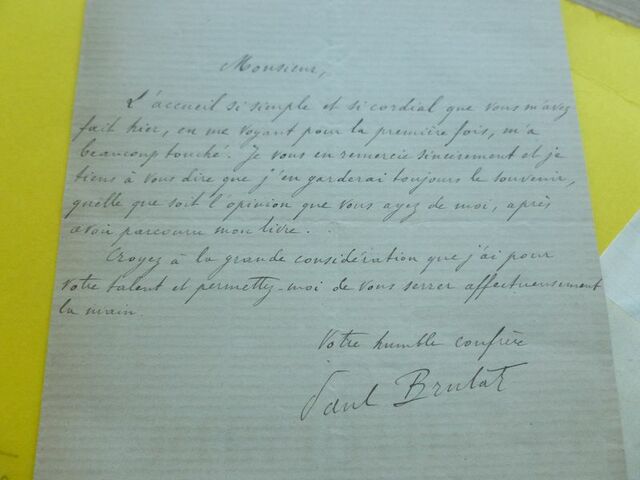 Monsieur,
L'accueil si simple et si cordial que vous m'avez
fait hier, en me voyant pour la première fois, m'a
beaucoup touché. Je vous en remercie sincèrement et je
tiens à vous dire que j'en garderai toujours le souvenir,
quelle que soit l'opinion que vous ayez de moi, après
avoir parcouru mon livre.
Croyez à la grande considération que j'ai pour
votre talent et permettez-moi de vous serrer affectueusement
la main.
Votre humble confrère
Paul Brulat